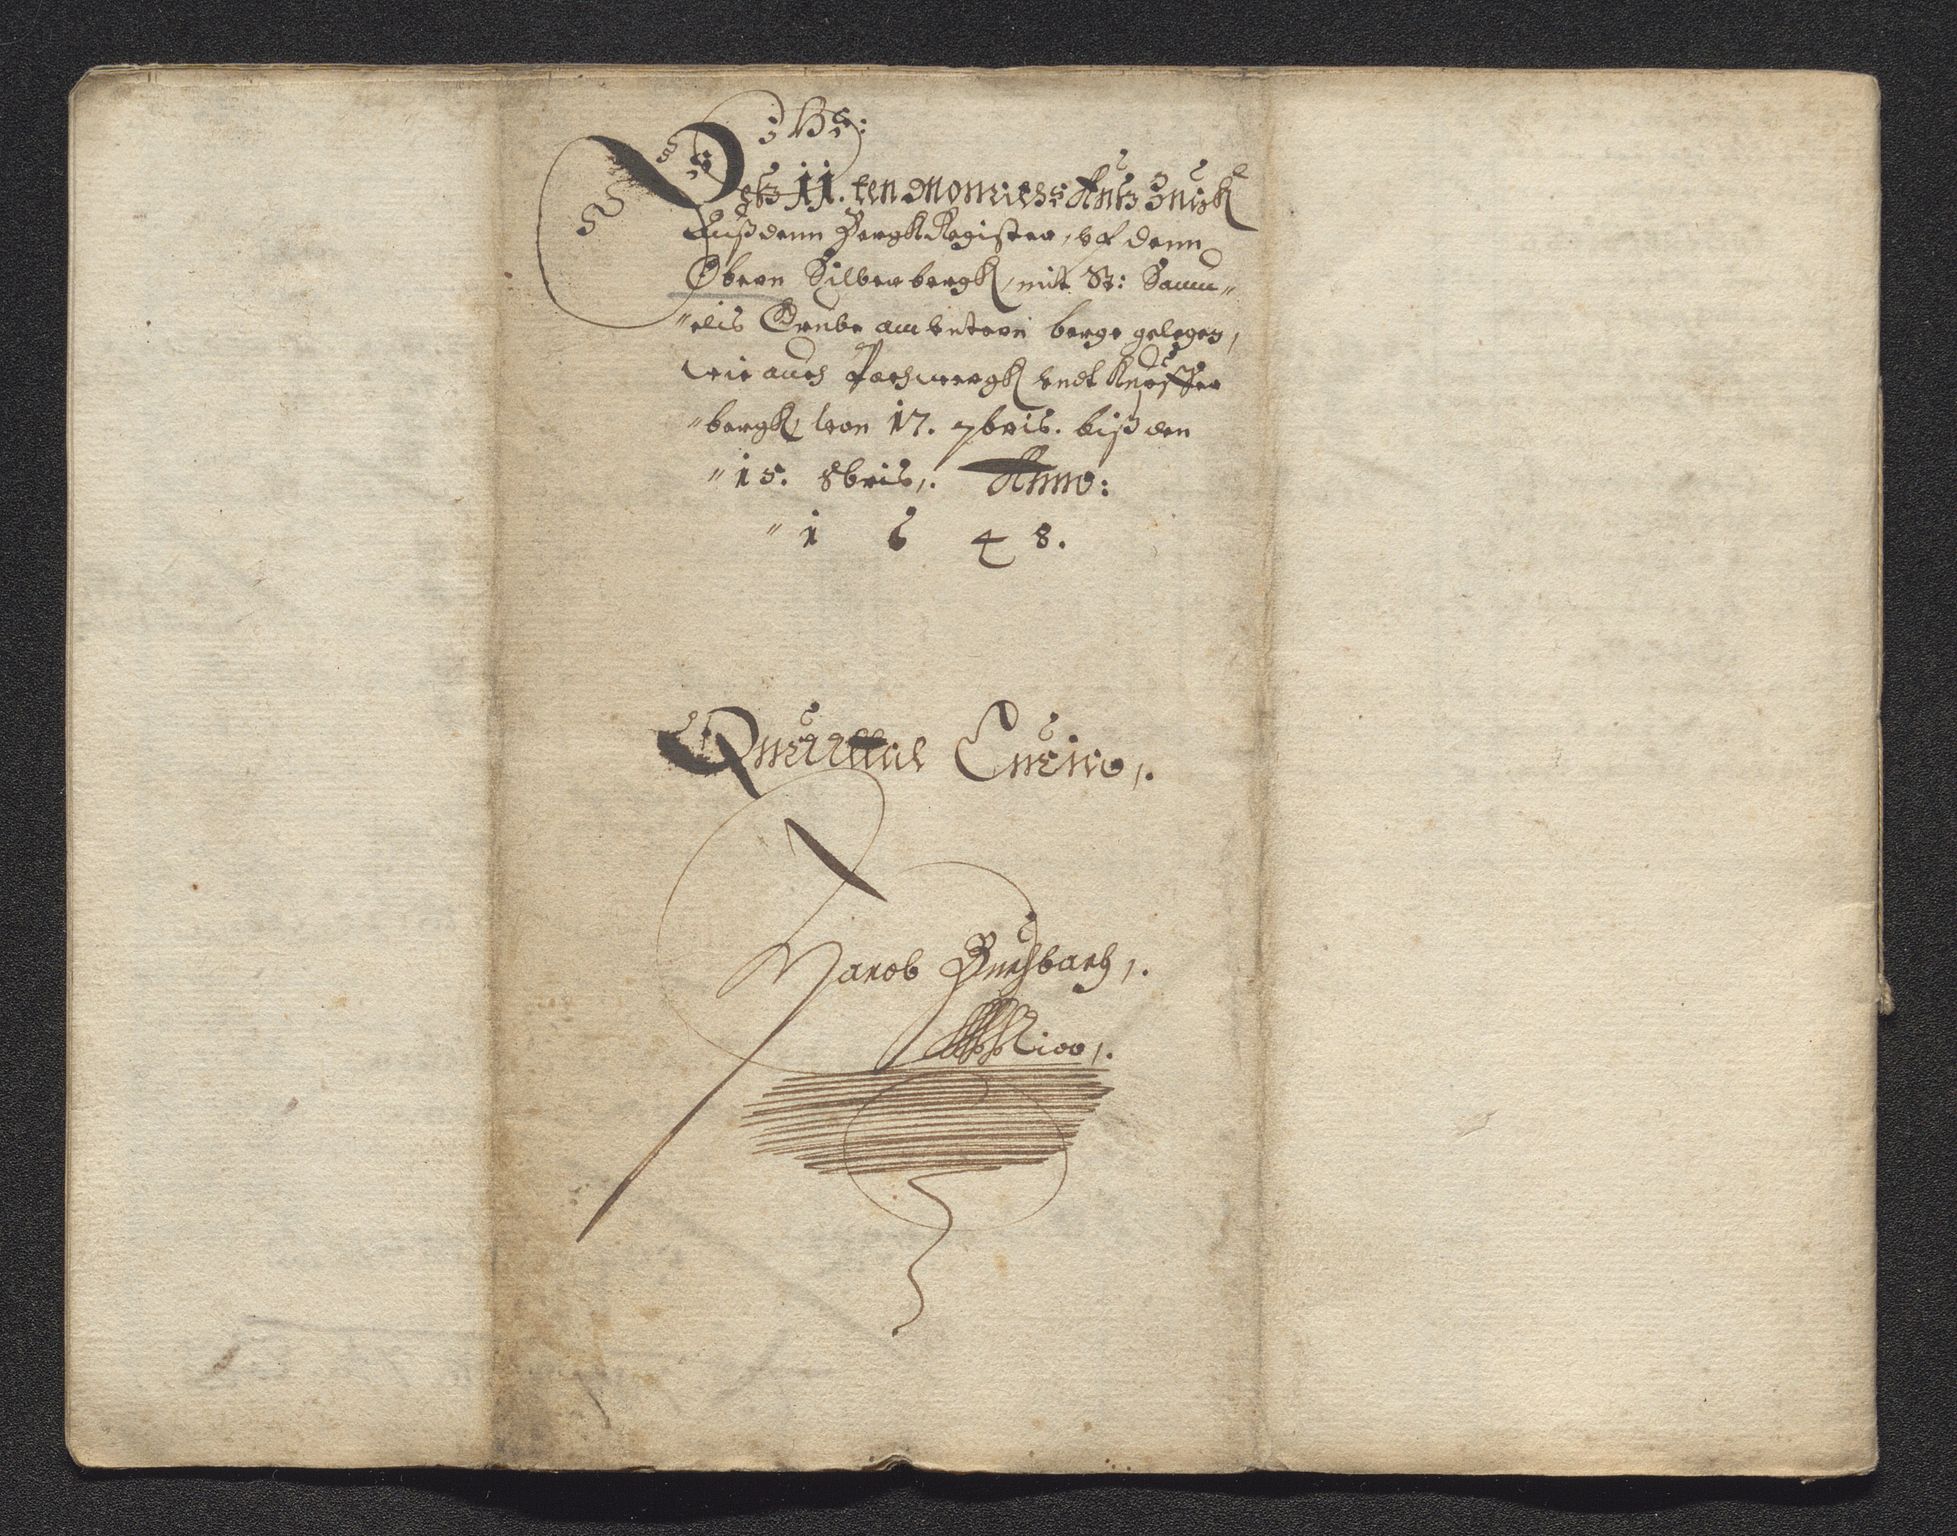 Deß 11. ten Monadts Außzugk
Auß denn Bergk Register, vf denn
Obern Silberbergk, mit St: Samu„
„elis Grube am vntern berge gelegen,
wie auch Pochwergk vndt Kupffer
„bergk, von 17. 7bris. biß den
„15. 8bris,. Anno:
„1 6 4 8.
Quarttal Crucis,.
Jacob Buchbach,.